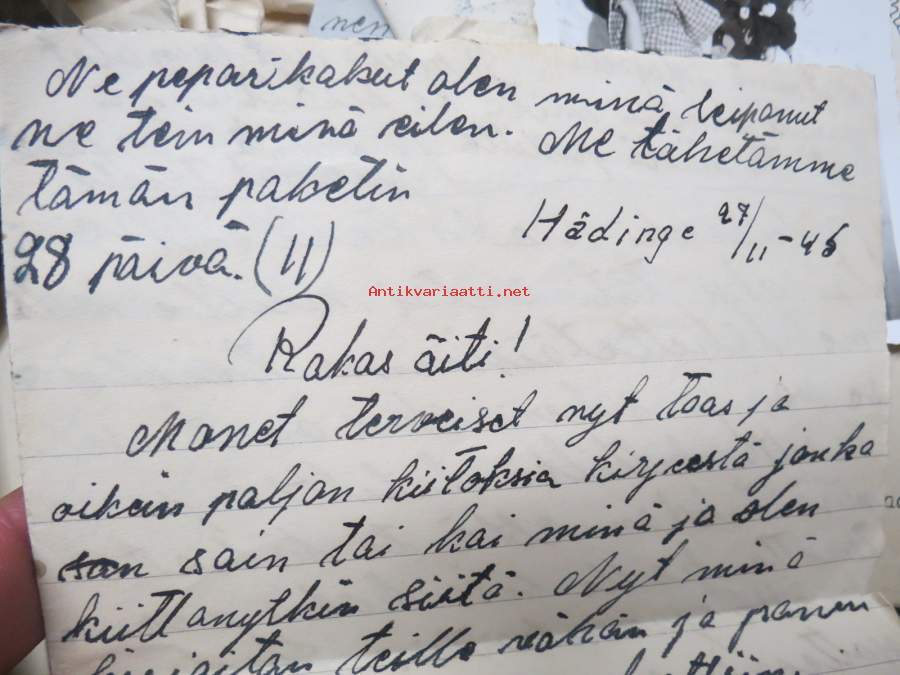 nen
Ne peparikakut olen minä leiponut
ne tein minä eilen. Me lähetämme
tämän paketin
28 päivä. (11)
Hädinge 27/11-45
Antikvariaatti.net
Rakas äiti!
Monet terveiset nyt taas ja
oikein paljon kiitoksia kirjeestä jonka
sain tai kai minä jo olen
kiittänytkin siitä. Nyt minä
kirjoitan teille vähän ja panen